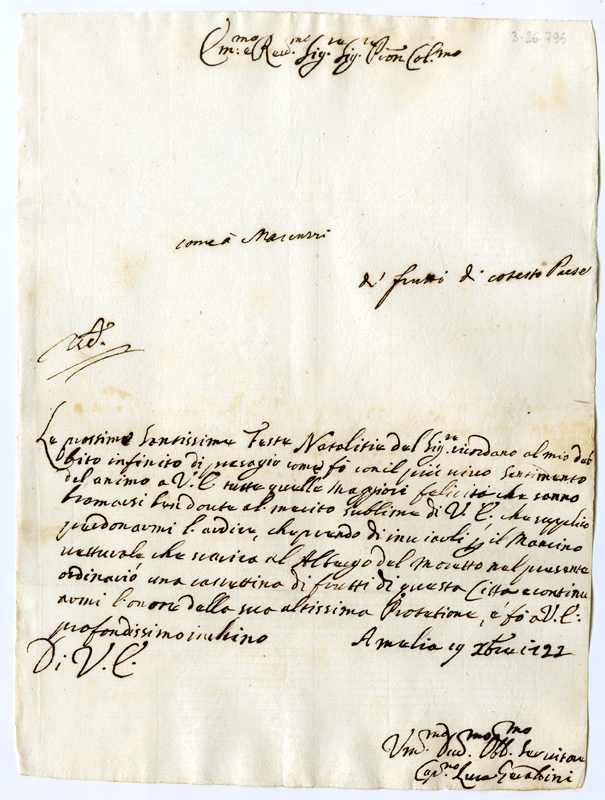 3-26-795
Em:mo e Rev:mo Sig:re Sig:re Pron Col:mo
come à
de' frutti di cotesto Paese
Le prossime Santissime Feste Natalitie del Sig:re ricordano al mio deb
bito infinito di presagio come fò con il più vivo sentimento
del animo a V. E. tutte quelle maggiori felicità che sanno
bramarsi ben dovute al merito sublime di V. E. che supplico
perdonarmi l'ardire, che prendo di inviarli p il Mancino
vetturale che scarica al Albergo del Moretto nel presente
ordinario una cassettina di frutti di questa Citta e continu
armi l'onore della sua altissima Protetione, e fò a V. E.
profondissimo inchino
Di V. E.
Amelia 19 Xbre 1722
Um:mo Dev:mo Obb:mo Servitore
Cap:no Luca